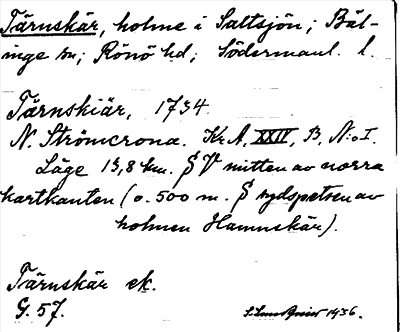 Tärnskär, holme i Saltsjön; Bäl-
inge sn; Rönö hd; Södermanl. l.
Tärnskiär, 1734.
N. Strömcrona. Kr.A, XXIV, B, N:o I.
Läge 13,8 km. S V mitten av norra
kartkanten (o. 500 m. S sydspetsen av
holmen Hamnskär).
Tärnskär ek.
G. 57.
1936.